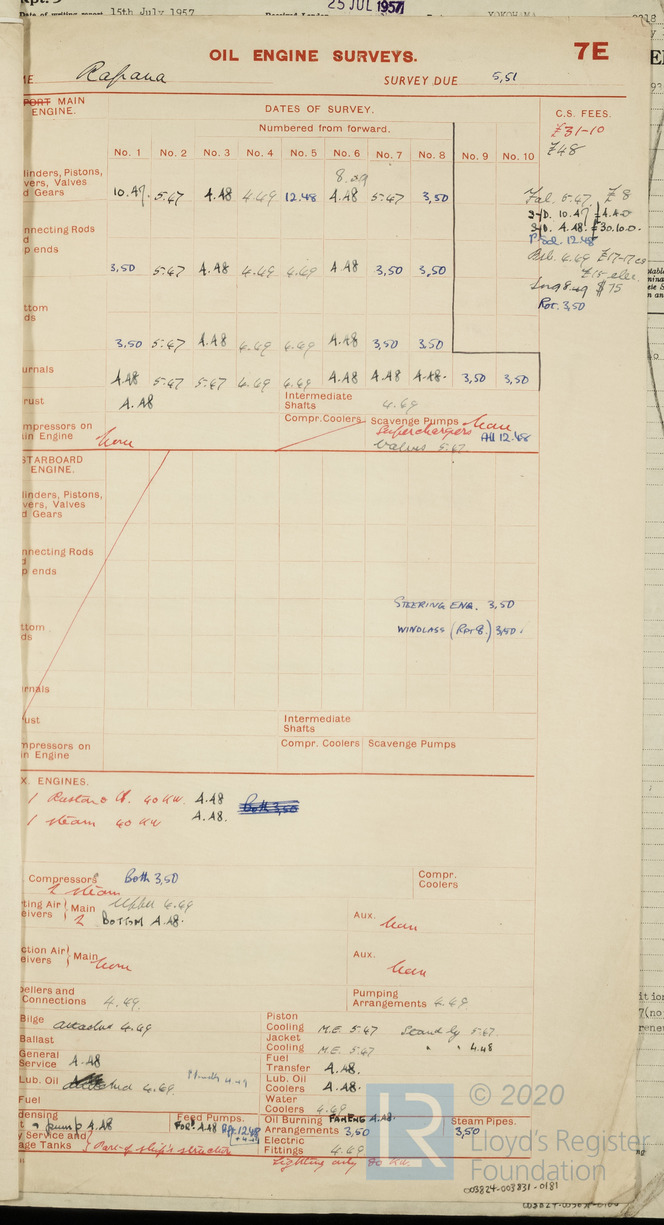 25 JUL 1957
Date of writing report 15th July 1957
OIL ENGINE SURVEYS.
7E
Rapana
SURVEY DUE 5,51
PORT MAIN
ENGINE.
DATES OF SURVEY.
C.S. FEES.
Numbered from forward.
£31-10
£48
No. 1 No. 2 No. 3 No. 4 No. 5 No. 6 No. 7 No. 8 No. 9 No. 10
linders, Pistons,
vers, Valves
d Gears
8.49
10.47. 5.47 4.48 4.49 12.48 4.48 5.47 3,50
Fal. 5.47 £8
S/D. 10.47 £4.4.0
S/D. 4.48. £30.10.0.
12.48
4.49 £17-17
£15 elec.
8.49 $75
Rot. 3,50
nnecting Rods
d
p ends
3,50 5.47 4.48 4.49 4.49 4.48 3,50 3,50
ttom
ds
3,50 5.47 4.48 4.49 4.49 4.48 3,50 3,50
urnals
4.48 5.47 5.47 4.49 4.49 4.48 4.48 4.48. 3,50 3,50
rust
4.48
Intermediate
Shafts
4.49
mpressors on
in Engine
None
Compr. Coolers
Scavenge Pumps None
Superchargers All 12.48
Valves 5.47
STARBOARD
ENGINE.
linders, Pistons,
vers, Valves
d Gears
nnecting Rods
d
p ends
STEERING ENG. 3,50
WINDLASS (Rpt 8.) 3,50.
ttom
ds
rnals
ust
Intermediate
Shafts
mpressors on
in Engine
Compr. Coolers
Scavenge Pumps
X. ENGINES.
1 Ruston 40 KW. 4.48
Both 3,50
1 Steam 40 KW 4.48.
Compressors Both 3,50
2 steam
Compr.
Coolers
ting Air
eivers
Main Upper 4.49
2 BOTTOM 4.48.
Aux.
None
ction Air
eivers
Main None
Aux.
None
ellers and
Connections 4.49.
Pumping
Arrangements 4.49.
Bilge attached 4.49
Ballast
General
Service 4.48
Lub. Oil attached 4.49.
Fuel
Piston
Cooling M.E. 5.47 Stand by 5.47
Jacket
Cooling M.E. 5.47 " " 4.48
Fuel
Transfer 4.48.
Lub. Oil
Coolers 4.48.
Water
Coolers 4.49
densing
pump 4.48
Feed Pumps.
FOR. 4.48 12.48
4.49
Oil Burning
Arrangements 3,50
Steam Pipes.
3,50
y Service and
age Tanks Part of ship's structure
Electric
Fittings 4.49
Lighting only
© 2020
LR
Lloyd's Register
Foundation
003824-003831-0181